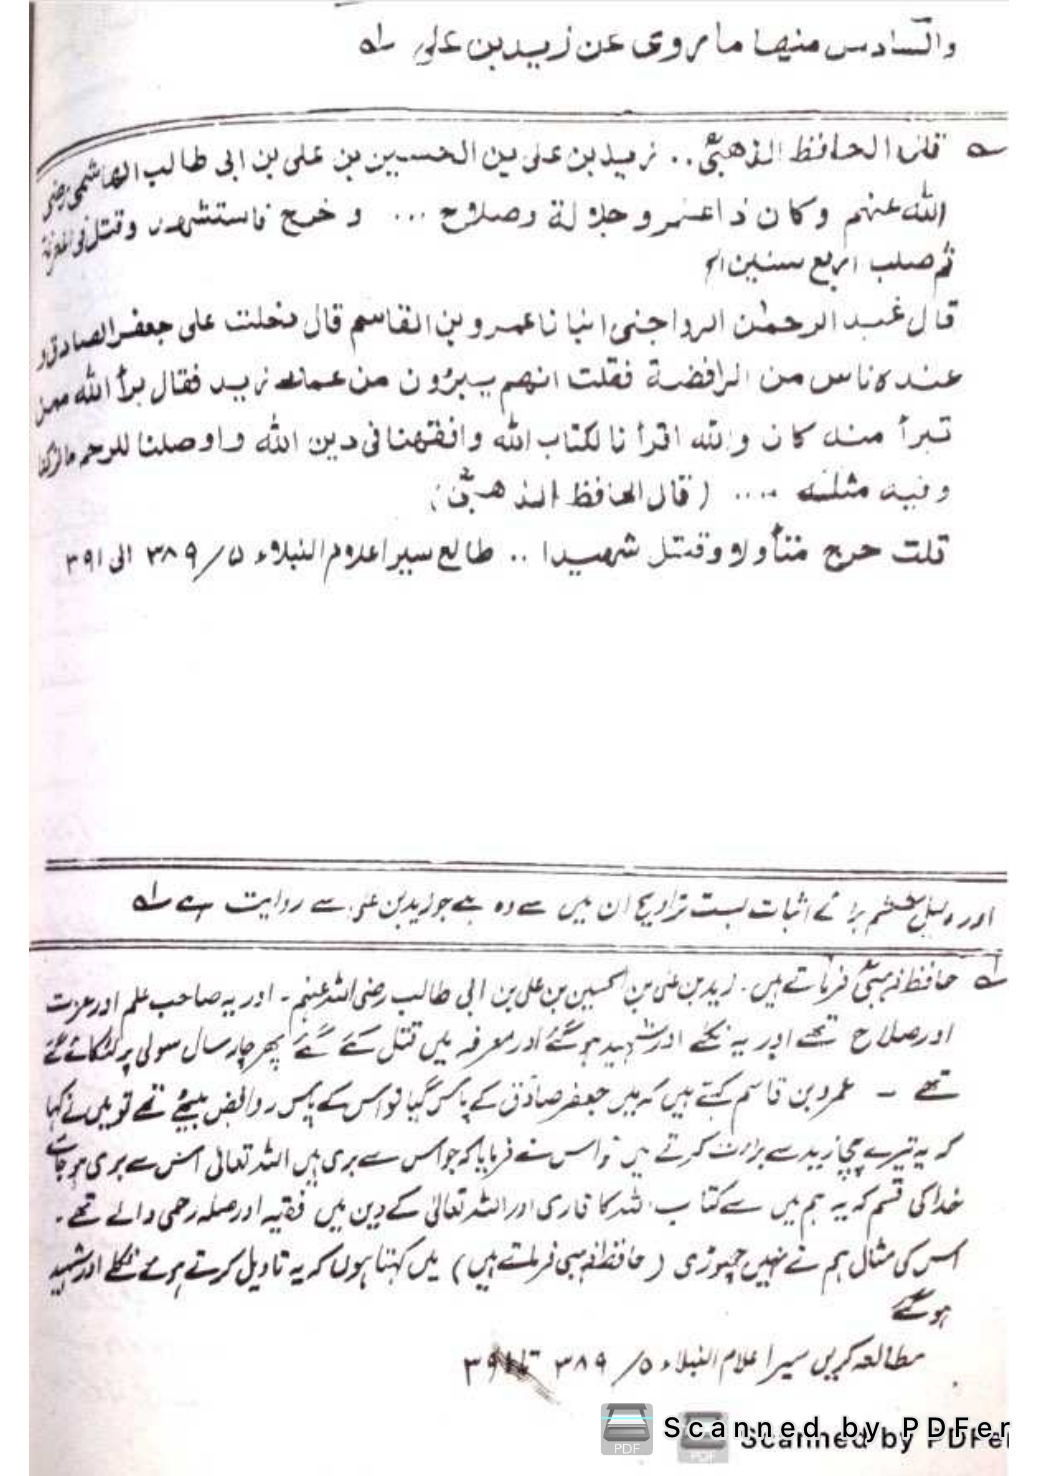 والسادس منها ما روی عن زید بن علی
قال الحافظ الذهبیؒ .. زید بن علی بن الحسین بن علی بن ابی طالب الهاشمی رضی
الله عنهم وکان ذا علم وجلالة وصلاح ... وخرج فاستشهد وقتل
ثم صلب اربع سنین الخ
قال عبد الرحمٰن الرواجنی انبانا عمرو بن القاسم قال دخلت علی جعفر الصادق و
عنده ناس من الرافضة فقلت انهم یبرؤن من عمک زید فقال برأ الله ممن
تبرأ منه کان والله اقرأنا لکتاب الله وافقهنا فی دین الله واوصلنا للرحم ما ترک
وفینا مثله .... (قال الحافظ الذهبیؒ)
قلت خرج متأولا وقتل شهیدا .. طالع سیر اعلام النبلاء ۵/ ۳۸۹ الی ۳۹۱
اور دلیل ششم برائے اثبات بست تراویح ان میں سے وہ ہے جو زید بن علی سے روایت ہے
حافظ ذہبیؒ فرماتے ہیں۔ زید بن علی بن الحسین بن علی بن ابی طالب رضی اللہ عنہم۔ اور یہ صاحب علم اور عزت
اور صلاح تھے اور یہ نکلے اور شہید ہو گئے اور معرفہ میں قتل کئے گئے پھر چار سال سولی پر لٹکائے گئے
تھے - عمرو بن قاسم کہتے ہیں کہ میں جعفر صادق کے پاس گیا تو اس کے پاس روافض بیٹھے تھے تو میں نے کہا
کہ یہ تیرے چچا زید سے براءت کرتے ہیں تو اس نے فرمایا کہ جو اس سے بری ہیں اللہ تعالی اس سے بری ہو جائے
خدا کی قسم کہ یہ ہم میں سے کتاب اللہ کا قاری اور اللہ تعالیٰ کے دین میں فقیہ اور صلہ رحمی والے تھے۔
اس کی مثال ہم نے نہیں چھوڑی (حافظ ذہبی فرماتے ہیں) میں کہتا ہوں کہ یہ تاویل کرتے ہوئے نکلے اور شہید
ہو گئے
مطالعہ کریں سیر اعلام النبلاء ۵/ ۳۸۹ تا ۳۹۱
Scanned by PDFer
Scanned by PDFer